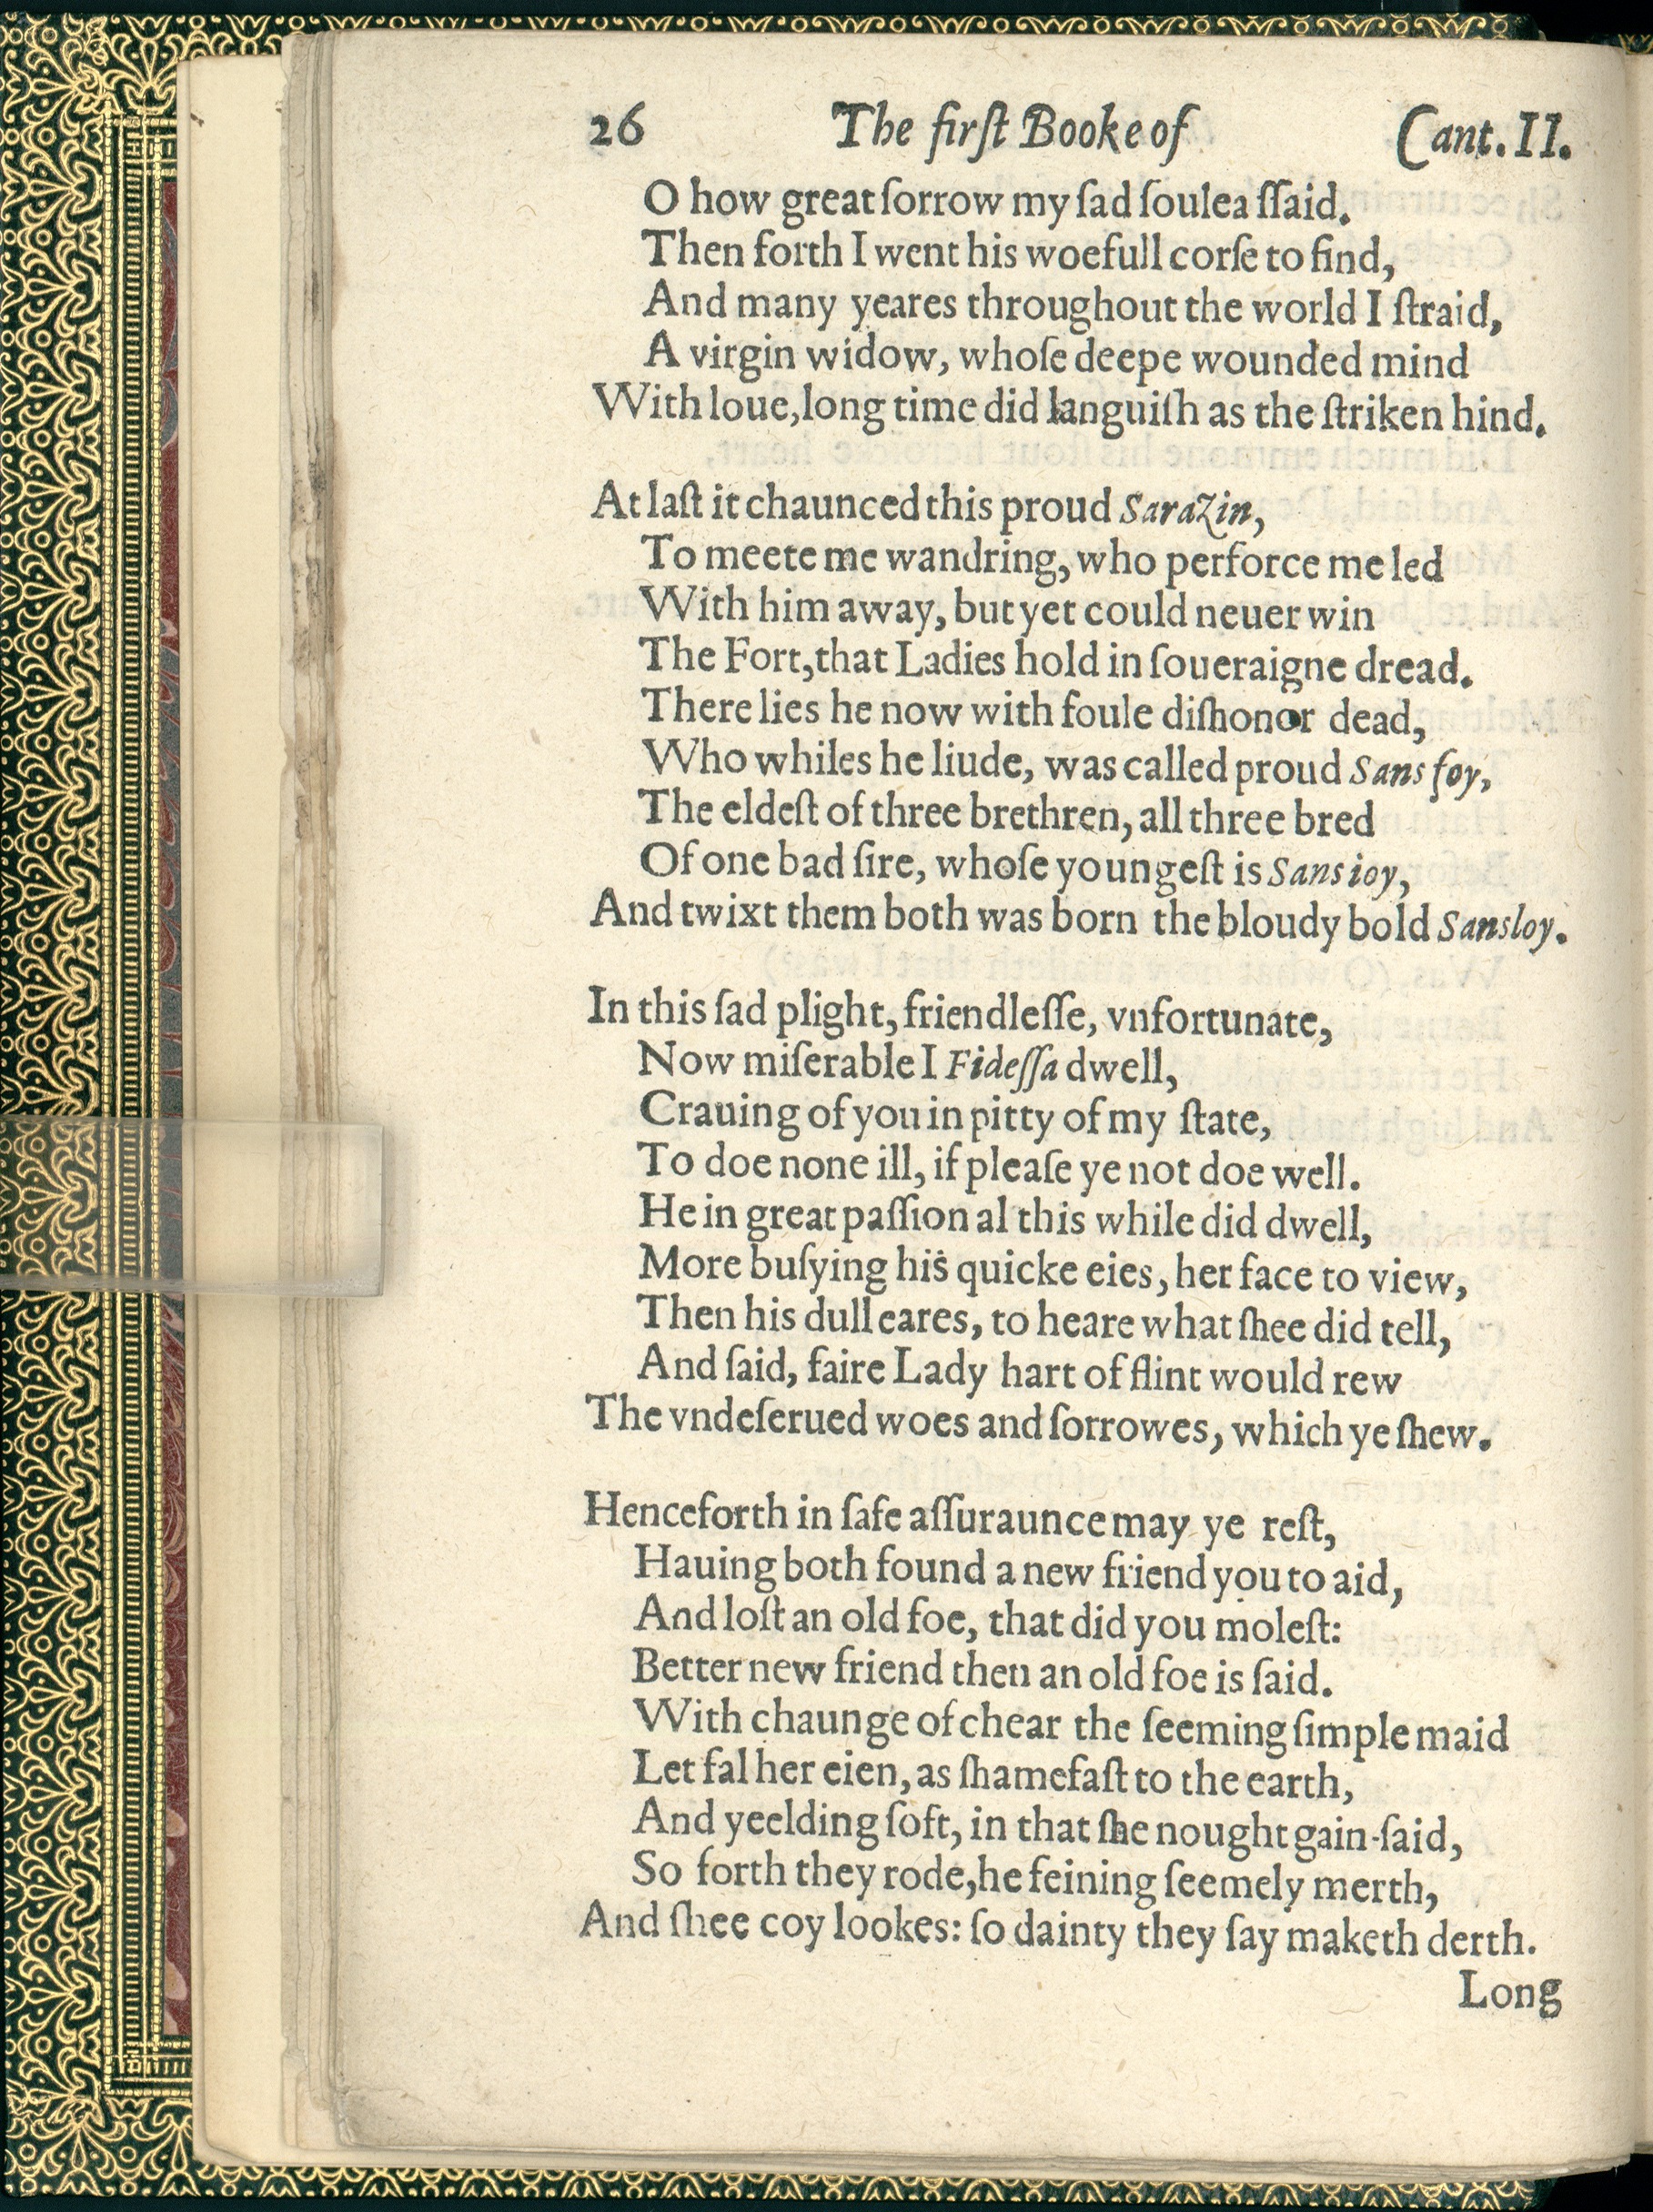 26 The firſt Booke of Cant. II.
O how great ſorrow my ſad ſoulea ſſaid.
Then forth I went his woefull corſe to find,
And many yeares throughout the world I ſtraid,
A virgin widow, whoſe deepe wounded mind
With loue, long time did languiſh as the ſtriken hind.
At laſt it chaunced this proud Sarazin,
To meete me wandring, who perforce me led
With him away, but yet could neuer win
The Fort, that Ladies hold in ſoueraigne dread.
There lies he now with foule diſhonor dead,
Who whiles he liude, was called proud Sans foy,
The eldeſt of three brethren, all three bred
Of one bad ſire, whoſe youngeſt is Sans ioy,
And twixt them both was born the bloudy bold Sansloy.
In this ſad plight, friendleſſe, vnfortunate,
Now miſerable I Fideſſa dwell,
Crauing of you in pitty of my ſtate,
To doe none ill, if pleaſe ye not doe well.
He in great paſſion al this while did dwell,
More buſying his quicke eies, her face to view,
Then his dull eares, to heare what ſhee did tell,
And ſaid, faire Lady hart of flint would rew
The vndeſerued woes and ſorrowes, which ye ſhew.
Henceforth in ſafe aſſuraunce may ye reſt,
Hauing both found a new friend you to aid,
And loſt an old foe, that did you moleſt:
Better new friend then an old foe is ſaid.
With chaunge of chear the ſeeming ſimple maid
Let fal her eien, as ſhamefaſt to the earth,
And yeelding ſoft, in that ſhe nought gain-ſaid,
So forth they rode, he feining ſeemely merth,
And ſhee coy lookes: ſo dainty they ſay maketh derth.
Long